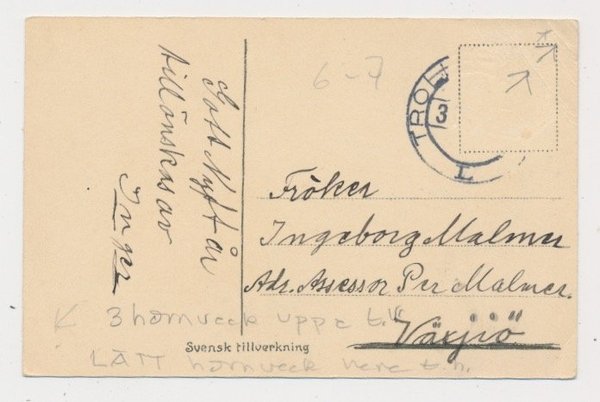 Gott Nytt år
tillönskas av
Inger
6-7
TROL
3
L
Fröken
Ingeborg Malmer
Adr. Assessor Per Malmer.
Växjö
3 hörnveck uppe t.v.
Svensk tillverkning
LÄTT hörnveck nere t.h.